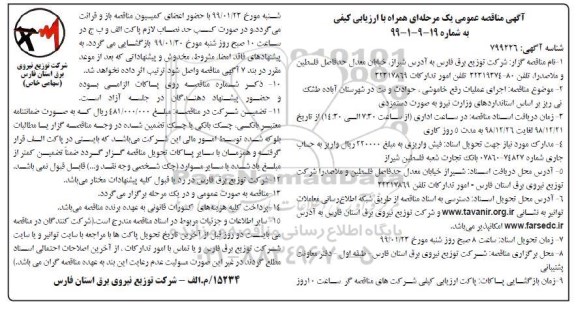 آگهی مناقصه عمومی یک مرحله‌ای همراه با ارزیابی کیفی
به شماره ۱۹-۹-۱-۹۹
شناسه آگهی: ۷۹۹۲۲۶
۱-نام مناقصه گزار: شرکت توزیع برق فارس به آدرس شیراز، خیابان معدل حدفاصل فلسطین
و ملاصدرا، تلفن ۸۰-
۲-موضوع مناقصه: اجرای عملیات رفع خاموشی، حوادث و نت در شهرستان آباده طشک
نی ریز بر اساس استانداردهای وزارت نیرو به صورت دستمزدی
۳- زمان دریافت اسناد مناقصه: در ساعت اداری (از ساعت ۷:۳۰ الی ۱۴:۳۰) از تاریخ
۹۸/۱۲/۲۱ لغایت ۹۸/۱۲/۲۶ به مدت ۵ روز کاری
۴- مدارک مورد نیاز جهت تحویل اسناد: فیش واریزی به مبلغ ۲۲۰۰۰۰ ریال واریز به حساب
جاری شماره بانک تجارت شعبه فلسطین شیراز
۵- آدرس محل دریافت اسناد: شیراز خیابان معدل حدفاصل فلسطین و ملاصدرا شرکت
توزیع نیروی برق استان فارس - امور تدارکات تلفن
۶- آدرس محل تحویل اسناد: دسترسی به اسناد مناقصه از طریق شبکه اطلاع‌رسانی معاملات
توانیر به نشانی www.tavanir.org.ir و شرکت توزیع نیروی برق استان فارس به آدرس
www.farsedc.ir امکانپذیر می‌باشد.
۷- زمان تحویل اسناد: ساعت ۸ صبح روز شنبه مورخ ۹۹/۰۱/۲۳
۸- محل برگزاری مناقصه: شرکت توزیع نیروی برق استان فارس - طبقه اول - دفتر معاونت
پشتیبانی
۹- زمان بازگشایی پاکات: پاکت ارزیابی کیفی شرکت های مناقصه گر ساعت ۱۰ روز
شنبه مورخ ۹۹/۰۱/۲۳ با حضور اعضای کمیسیون مناقصه باز و قرائت
می‌گردد و در صورت کسب حد نصاب لازم پاکت الف و ب و ج در
ساعت ۱۰ صبح روز شنبه مورخ ۹۹/۰۱/۳۰ بازگشایی می گردد. به
پیشنهادهای (فاقد امضا، مشروط، مخدوش و پیشنهاداتی که بعد از موعد
مقرر در بند ۷ آگهی مناقصه واصل شود) ترتیب اثر داده نخواهد شد.
۱۰- ذکر شماره مناقصه روی پاکات الزامی بوده
و حضور پیشنهاد دهندگان در جلسه آزاد است.
۱۱- تضمین شرکت در مناقصه: مبلغ ۴۸۱/۰۰۰/۰۰۰ ریال که به صورت ضمانتنامه
معتبر بانکی، چک بانکی یا چک تضمین شده در وجه مناقصه گزار یا مطالبات
بلوکه شده توسط امور مالی این شرکت می‌باشد، که بایستی در پاکت الف قرار
گرفته و همزمان با سایر پاکات تحویل مناقصه گزار گردد ضمنا تضمین کمتر از
مبلغ یاد شده یا سایر موارد (چک شخصی وجه نقد و...) قابل قبول نمی باشد.
۱۲- شرکت توزیع برق فارس در رد یا قبول کلیه پیشنهادات مختار می‌باشد.
۱۳- مناقصه به صورت عمومی و در یک مرحله برگزار می‌گردد.
۱۴- پرداخت کلیه هزینه‌های کسورات قانونی به عهده برنده مناقصه می‌باشد.
۱۵- سایر اطلاعات و جزئیات مربوط در اسناد مناقصه مندرج است. (شرکت کنندگان در مناقصه
می بایست دو روز قبل از آخرین تاریخ تحویل پاکت ها با مراجعه با سایت توانیر و یا سایت
شرکت توزیع برق فارس و یا تماس با امور تدارکات، از آخرین اصلاحات احتمالی اسناد
مطلع گردند در غیر این صورت مسولیت عدم رعایت این بند به عهده مناقصه گران می باشد.)
۱۵۲۳۴/م.الف - شرکت توزیع نیروی برق استان فارس
شرکت توزیع نیروی
برق استان فارس
(سهامی خاص)